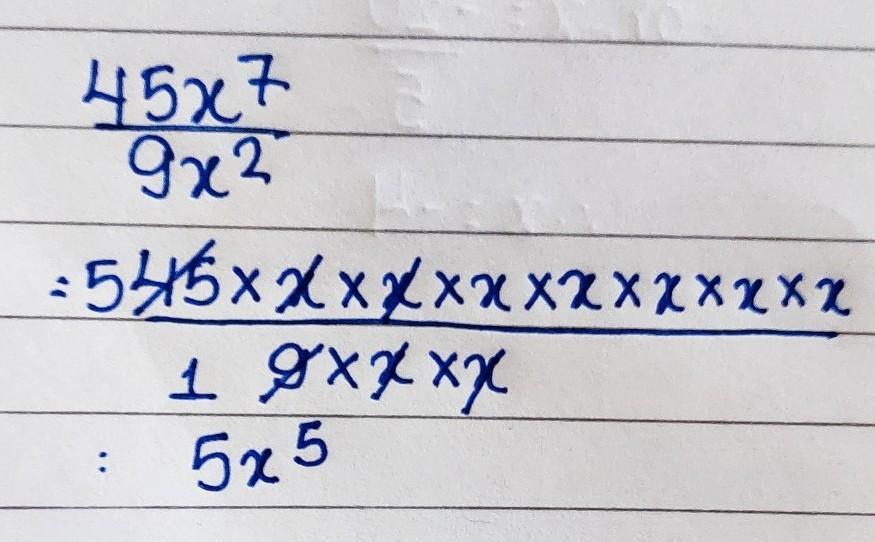 45x⁷
9x²
= 5 45 × x × x × x × x × x × x × x
1 9 × x × x
: 5x⁵